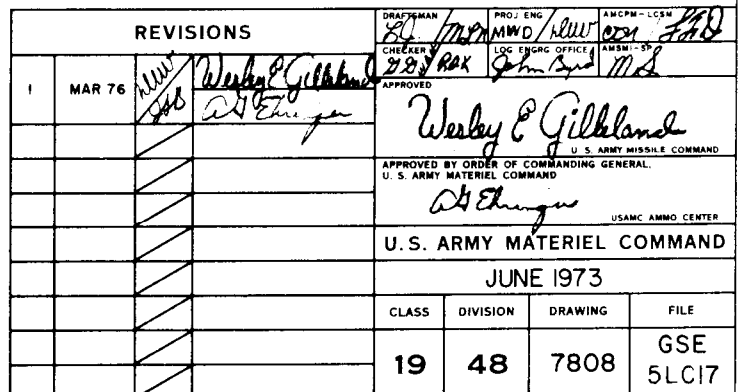 REVISIONS
1 MAR 76 Wesley E Gilleland
A G Ehringer
DRAFTSMAN
PROJ ENG
MWD / DLW
AMCPM-LCSM
CHECKER
LOG ENGRG OFFICE
John Byrd
AMSMI-SF
M S
APPROVED
Wesley E Gilleland
U S. ARMY MISSILE COMMAND
APPROVED BY ORDER OF COMMANDING GENERAL,
U. S. ARMY MATERIEL COMMAND
A G Ehringer
USAMC AMMO CENTER
U.S. ARMY MATERIEL COMMAND
JUNE 1973
CLASS DIVISION DRAWING FILE
19 48 7808 GSE
5LC17